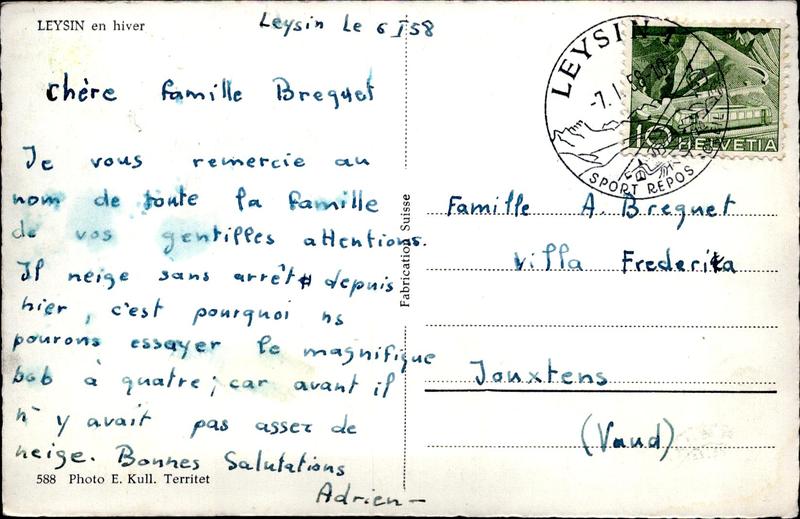 LEYSIN en hiver
Leysin Le 6 I 58
Chère famille Breguet
Je vous remercie au
nom de toute la famille
de vos gentilles attentions.
Il neige sans arrêt depuis
hier, c'est pourquoi ns
pourons essayer le magnifique
bob à quatre ; car avant il
n'y avait pas assez de
neige. Bonnes Salutations
Adrien -
588 Photo E. Kull. Territet
Fabrication Suisse
LEYSIN 1
-7. I. 58-10
SPORT REPOS
10 HELVETIA
Famille A. Breguet
Villa Frederika
Jouxtens
(Vaud)